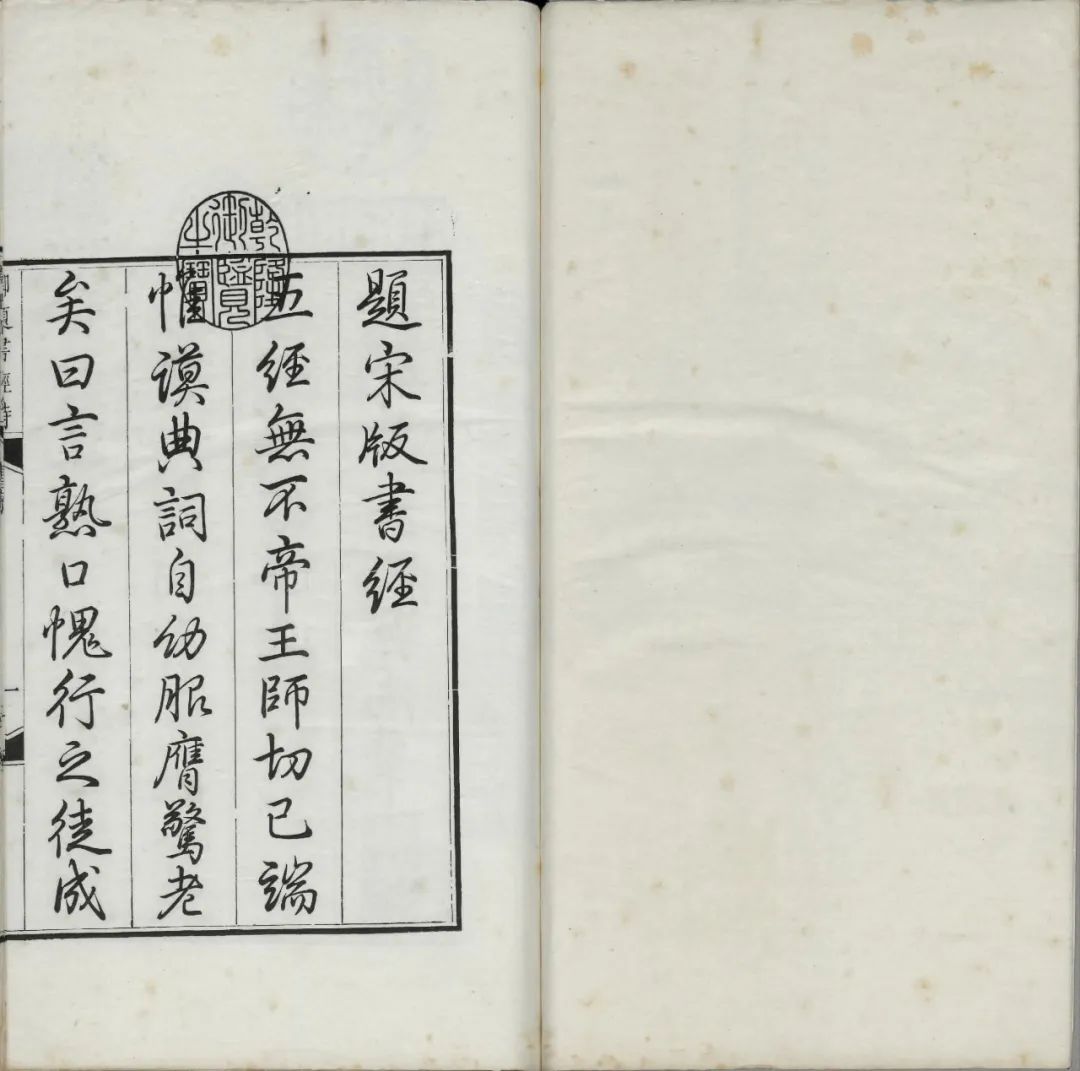 乾隆御覽之寶
題宋版書經
五經無不帝王師切己端
惟謨典詞自幼服膺驚老
矣曰言熟口愧行之徒成
御題書經詩
一